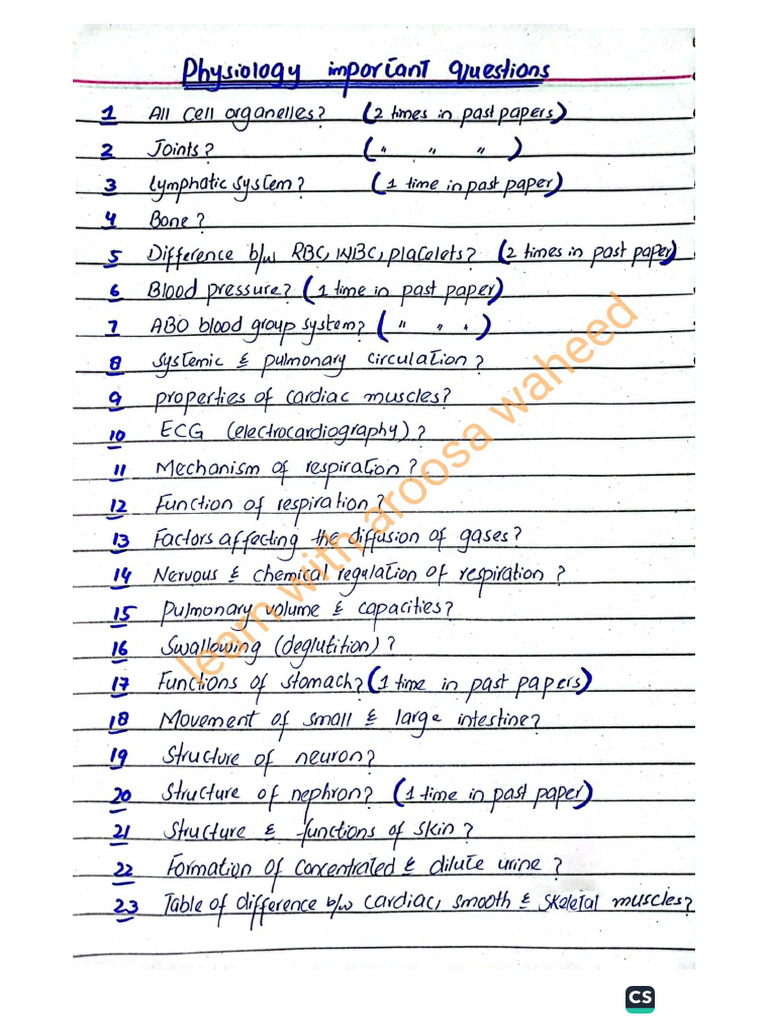 Physiology important questions
1 All cell organelles? (2 times in past papers)
2 Joints? (" " ")
3 Lymphatic system? (1 time in past paper)
4 Bone?
5 Difference b/w RBC, WBC, platelets? (2 times in past paper)
6 Blood pressure? (1 time in past paper)
7 ABO blood group system? (" " ")
8 Systemic & pulmonary circulation?
9 properties of cardiac muscles?
10 ECG (electrocardiography)?
11 Mechanism of respiration?
12 Function of respiration?
13 Factors affecting the diffusion of gases?
14 Nervous & chemical regulation of respiration?
15 Pulmonary volume & capacities?
16 Swallowing (deglutition)?
17 Functions of stomach? (1 time in past papers)
18 Movement of small & large intestine?
19 Structure of neuron?
20 Structure of nephron? (1 time in past paper)
21 Structure & functions of skin?
22 Formation of concentrated & dilute urine?
23 Table of difference b/w cardiac, smooth & skeletal muscles?
learn with aroosa waheed
CS